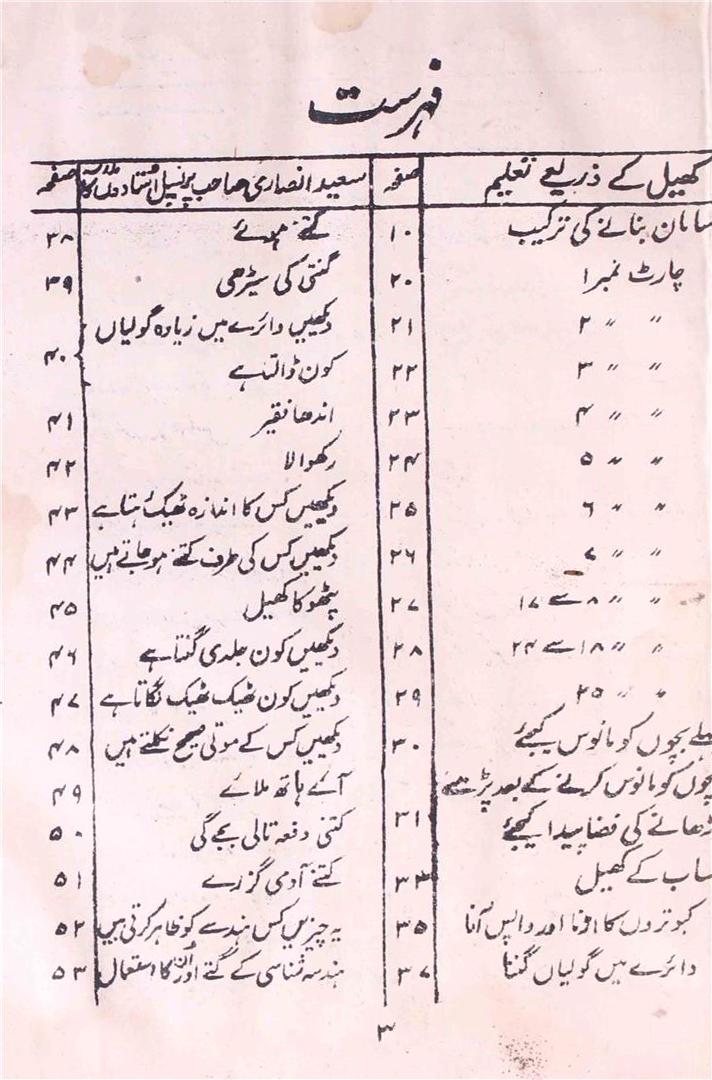 فہرست
کھیل کے ذریعے تعلیم صفحہ
سامان بنانے کی ترکیب ۱۰
چارٹ نمبر ۱ ۲۰
〃 〃 ۲ ۲۱
〃 〃 ۳ ۲۲
〃 〃 ۴ ۲۳
〃 〃 ۵ ۲۴
〃 〃 ۶ ۲۵
〃 〃 ۷ ۲۶
〃 〃 ۸ سے ۱۷ ۲۷
〃 〃 ۱۸ سے ۲۴ ۲۸
〃 〃 ۲۵ ۲۹
پہلے بچوں کو مانوس کیجئے ۳۰
بچوں کو مانوس کرنے کے بعد پڑھنے
پڑھانے کی فضا پیدا کیجئے ۳۱
حساب کے کھیل ۳۳
کبوتروں کا اڑنا اور واپس آنا ۳۵
دائرے میں گولیاں گننا ۳۷
سعید انصاری صاحب پرنسپل استادوں کا صفحہ
کتنے ہوئے ۳۸
گنتی کی سیڑھی ۳۹
دیکھیں دائرے میں زیادہ گولیاں
کون ڈالتا ہے ۴۰
اندھا فقیر ۴۱
رکھوالا ۴۲
دیکھیں کس کا اندازہ ٹھیک رہتا ہے ۴۳
دیکھیں کس کی طرف کتنے ہو جاتے ہیں ۴۴
پٹھو کا کھیل ۴۵
دیکھیں کون جلدی گنتا ہے ۴۶
دیکھیں کون ٹھیک ٹھیک لگاتا ہے ۴۷
دیکھیں کس کے موتی صحیح نکلتے ہیں ۴۸
آئے ہاتھ ملائے ۴۹
کتنی دفعہ تالی بجے گی ۵۰
کتنے آدمی گزرے ۵۱
یہ چیزیں کس ہندسے کو ظاہر کرتی ہیں ۵۲
ہندسہ شناسی کے گتے اور اُن کا استعمال ۵۳
۳